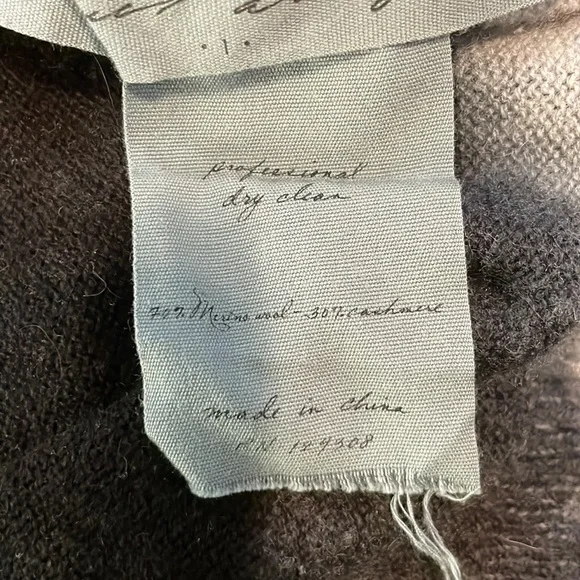 . 1 .
professional
dry clean
70% Merino wool - 30% cashmere
made in china
RN 129308